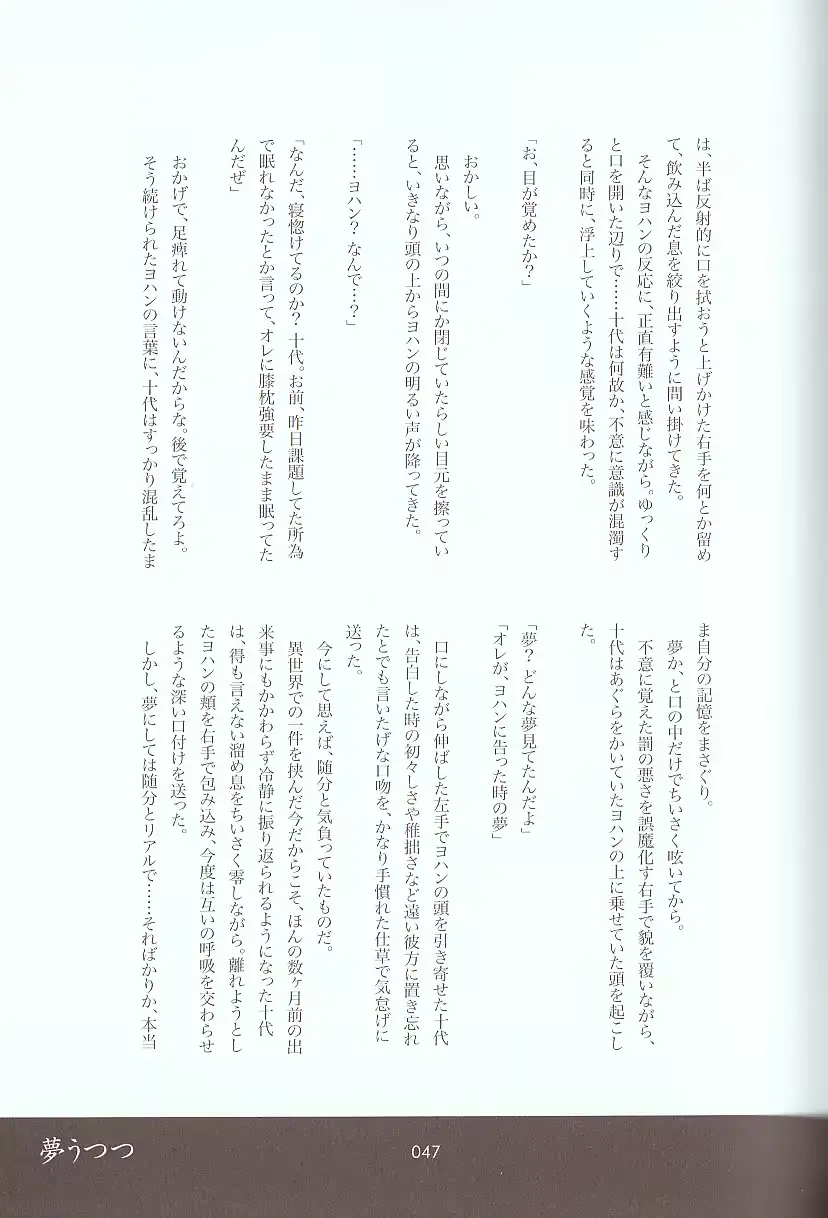 は、半ば反射的に口を拭おうと上げかけた右手を何とか留め
て、飲み込んだ息を絞り出すように問い掛けてきた。
そんなヨハンの反応に、正直有難いと感じながら。ゆっくり
と口を開いた辺りで……十代は何故か、不意に意識が混濁す
ると同時に、浮上していくような感覚を味わった。
「お、目が覚めたか?」
おかしい。
思いながら、いつの間にか閉じていたらしい目元を擦ってい
ると、いきなり頭の上からヨハンの明るい声が降ってきた。
「……ヨハン? なんで…?」
「なんだ、寝惚けてるのか? 十代。お前、昨日課題してた所為
で眠れなかったとか言って、オレに膝枕強要したまま眠ってた
んだぜ」
おかげで、足痺れて動けないんだからな。後で覚えてろよ。
そう続けられたヨハンの言葉に、十代はすっかり混乱したま
ま自分の記憶をまさぐり。
夢か、と口の中だけでちいさく呟いてから。
不意に覚えた罰の悪さを誤魔化す右手で貌を覆いながら、
十代はあぐらをかいていたヨハンの上に乗せていた頭を起こし
た。
「夢? どんな夢見てたんだよ」
「オレが、ヨハンに告った時の夢」
口にしながら伸ばした左手でヨハンの頭を引き寄せた十代
は、告白した時の初々しさや稚拙さなど遠い彼方に置き忘れ
たとでも言いたげな口吻を、かなり手慣れた仕草で気怠げに
送った。
今にして思えば、随分と気負っていたものだ。
異世界での一件を挟んだ今だからこそ、ほんの数ヶ月前の出
来事にもかかわらず冷静に振り返られるようになった十代
は、得も言えない溜め息をちいさく零しながら。離れようとし
たヨハンの頬を右手で包み込み、今度は互いの呼吸を交わらせ
るような深い口付けを送った。
しかし、夢にしては随分とリアルで……そればかりか、本当
夢うつつ
047